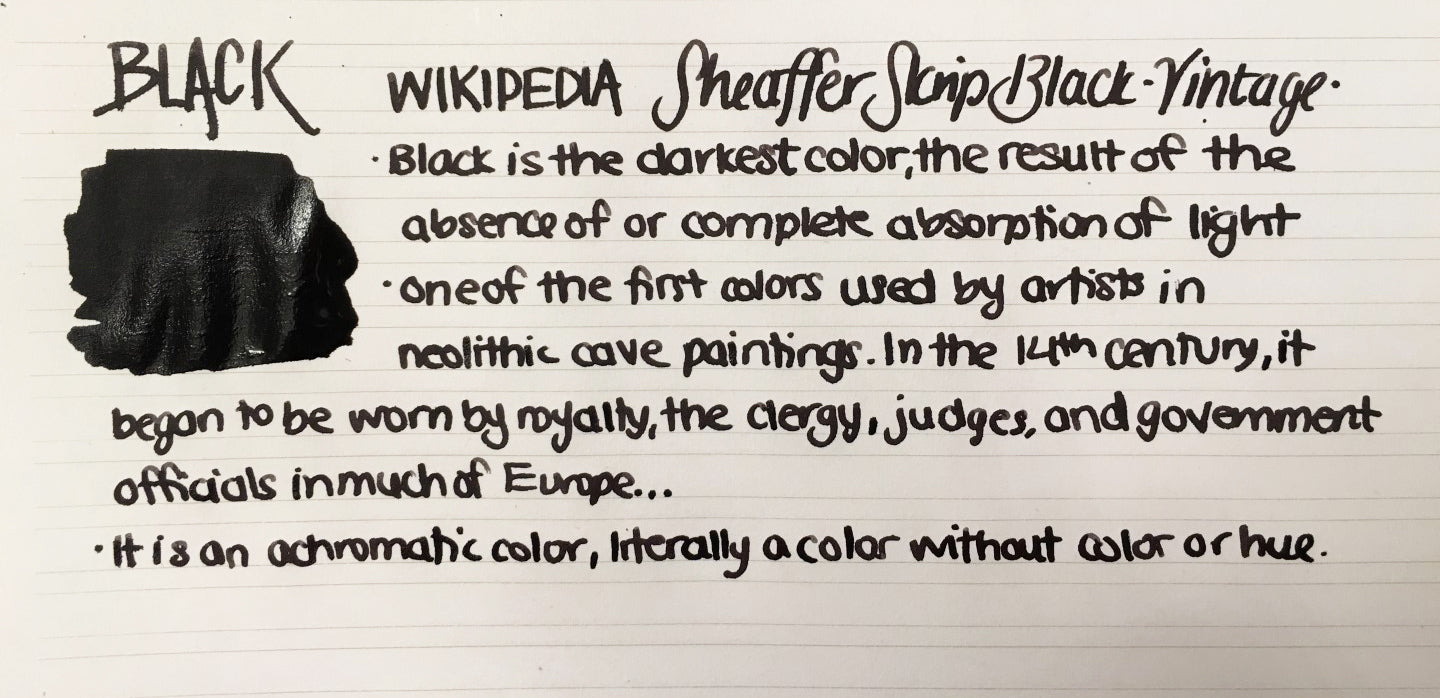 BLACK WIKIPEDIA Sheaffer Skrip Black · Vintage ·
· Black is the darkest color, the result of the
absence of or complete absorption of light
· one of the first colors used by artists in
neolithic cave paintings. In the 14th century, it
began to be worn by royalty, the clergy, judges, and government
officials in much of Europe...
· It is an achromatic color, literally a color without color or hue.